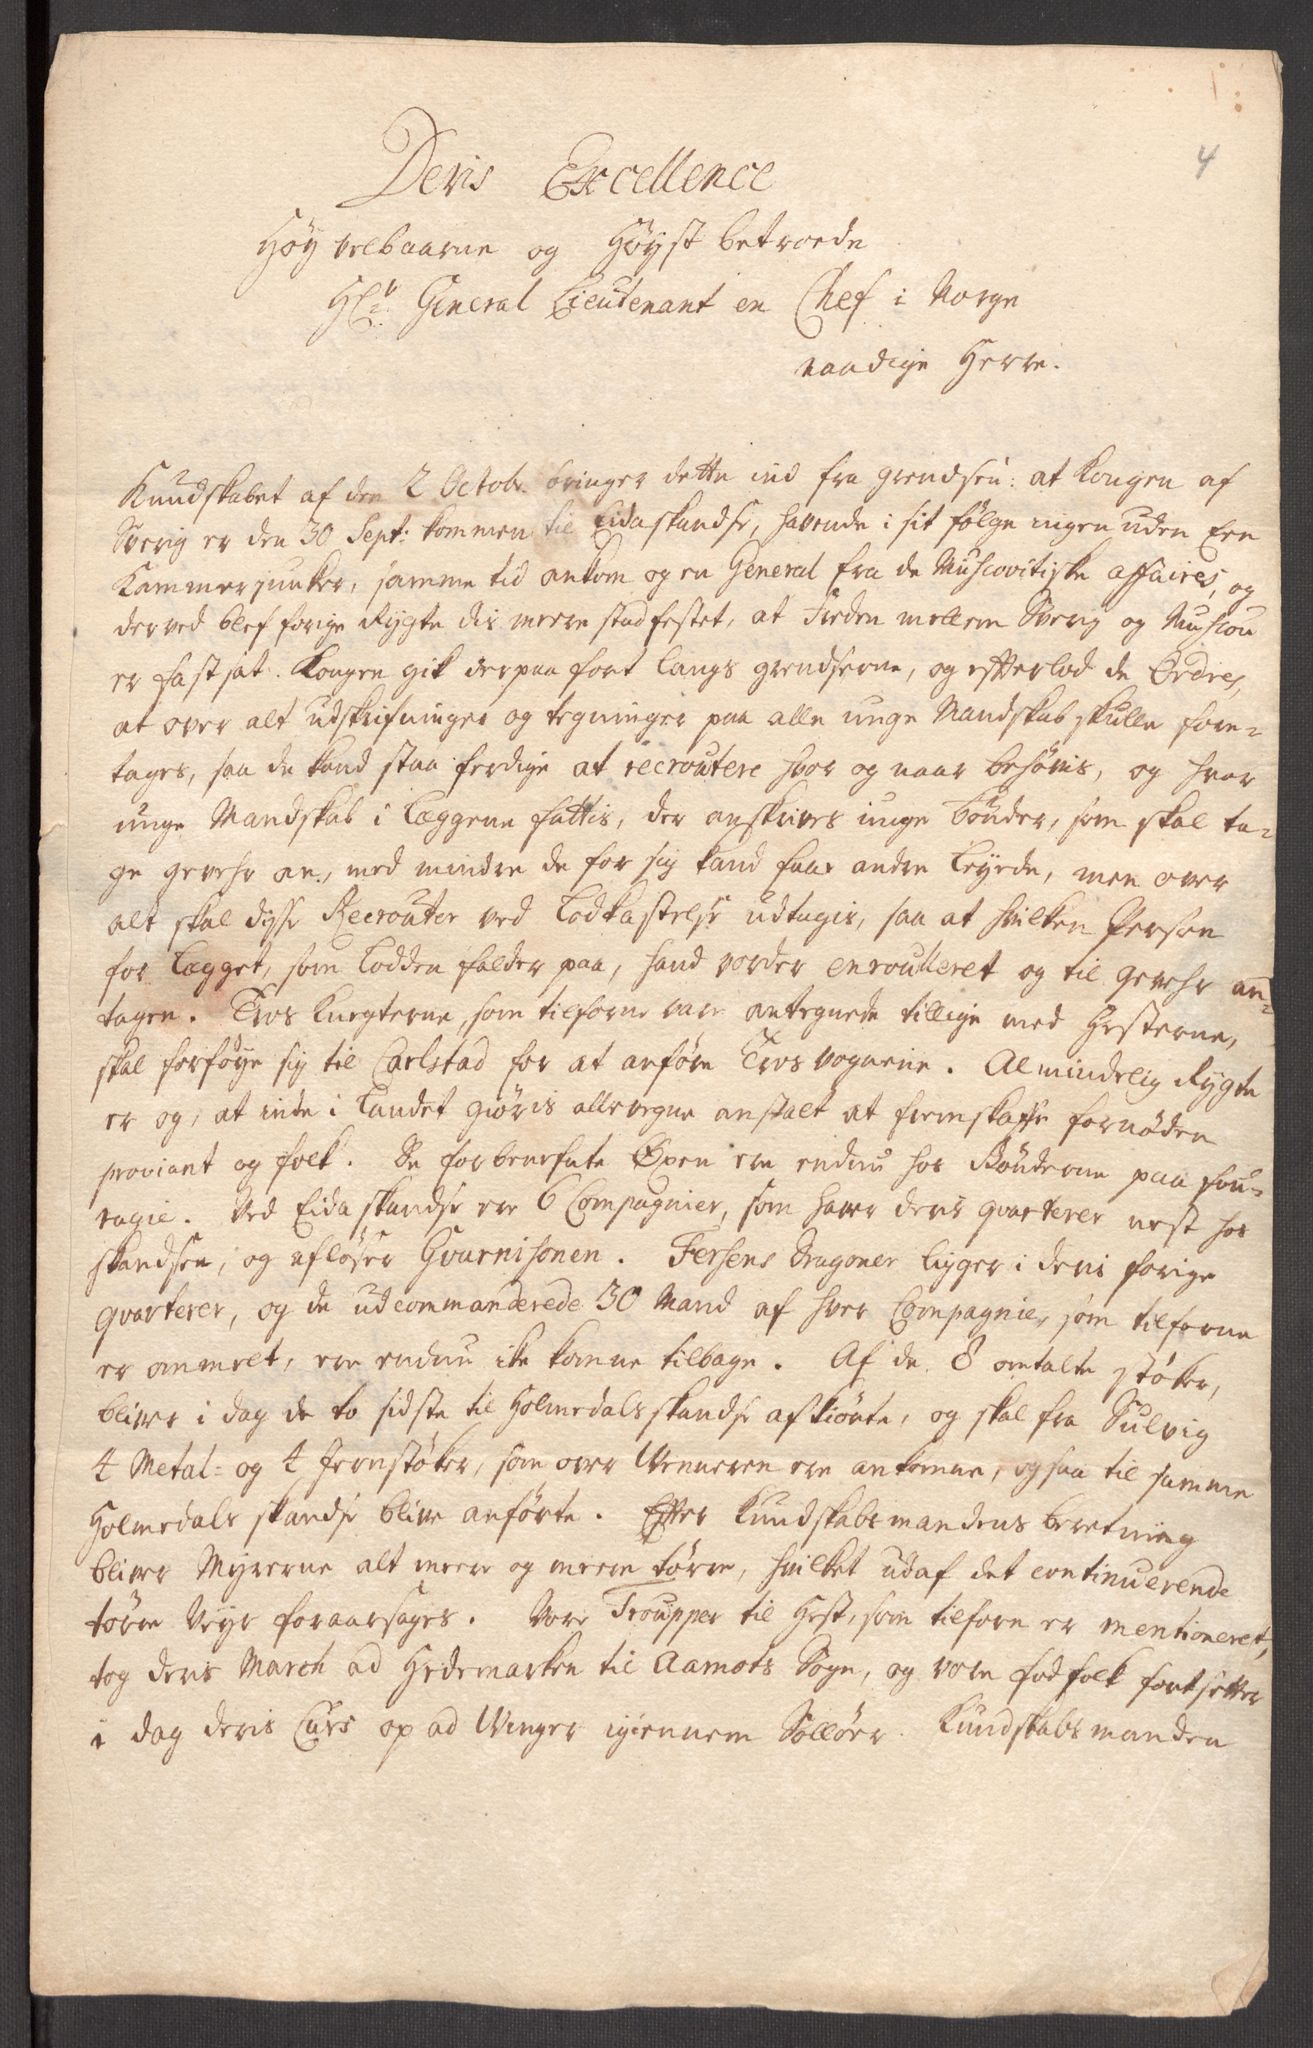 4
Deris Excellence
Høy velbaarne og Høyst betroede
Hr: General Lieutenant en Chef i Norge
naadige Herre.
Kundskabet af den 2 Octobr. bringer dette ind fra grendsen: at Kongen af
Sverig er den 30 Sept: kommen til Eidaskandse, havende i sit følge ingen uden Een
Kammerjunker, samme tid ankom og en General fra de Muscovitiske affaires, og
derved blef forige Rygte dis meere stadfestet, at Freden mellem Sverig og Muscou
er fastsat. Kongen gik derpaa fort langs grendserne, og efterlod de Ordres,
at over alt udskrifninger og tegninger paa alle unge Mandskab skulle fore-
tages, saa de kand staa ferdige at recroutere hvor og naar behøvis, og hvor
unge Mandskab i Læggene fattis, der anskrives unge bønder, som skal ta-
ge gevehr an, med mindre de for sig kand faae andre Leyede, men over
alt skal disse Recrouter ved Lodkastelse udtagis, saa at hvilken Person
for Legget, som Lodden falder paa, hand vorder enroulleret og til gevehr an-
tagen. Tros knegterne, som tilforne vare antegnede tillige med Hesterne,
skal forføye sig til Carlstad for at anføre Tros vognene. Almindelig Rygte
er og, at inde i Landet giøris allevegne anstalt at fremskaffe fornøden
proviant og folk. De forbenefnte Øxen ere endnu hos Bønderne paa fou-
ragie. Ved Eidaskandse ere 6 Compagnier, som haver deris qvarterer nest hos
skandsen, og afløser Gvarnisonen. Fersens Dragoner ligger i deris forige
qvarterer, og de udcommanderede 30 Mand af hver Compagnie, som tilforne
er ommelt, ere endnu ike komne tilbage. Af de 8 omtalte støker,
bliver i dag de to sidste til Holmedals skandse afkiørte, og skal fra Sulvig
4 Metal- og 4 Jernstøker, som over Wenneren ere ankomne, ogsaa til samme
Holmedals skandse blive anførte. Efter Kundskabsmandens beretning
bliver Myrerne alt meere og meere tørre, hvilket udaf det continuerende
tørre Veyr foraarsages. Vore Troupper til Hest, som tilforn er mentioneret,
tog deris March ad Hedemarken til Aamots Sogn, og vore fodfolk fortsetter
i dag deris Cürs op ad Winger igiennem Solløer. Kundskabsmanden